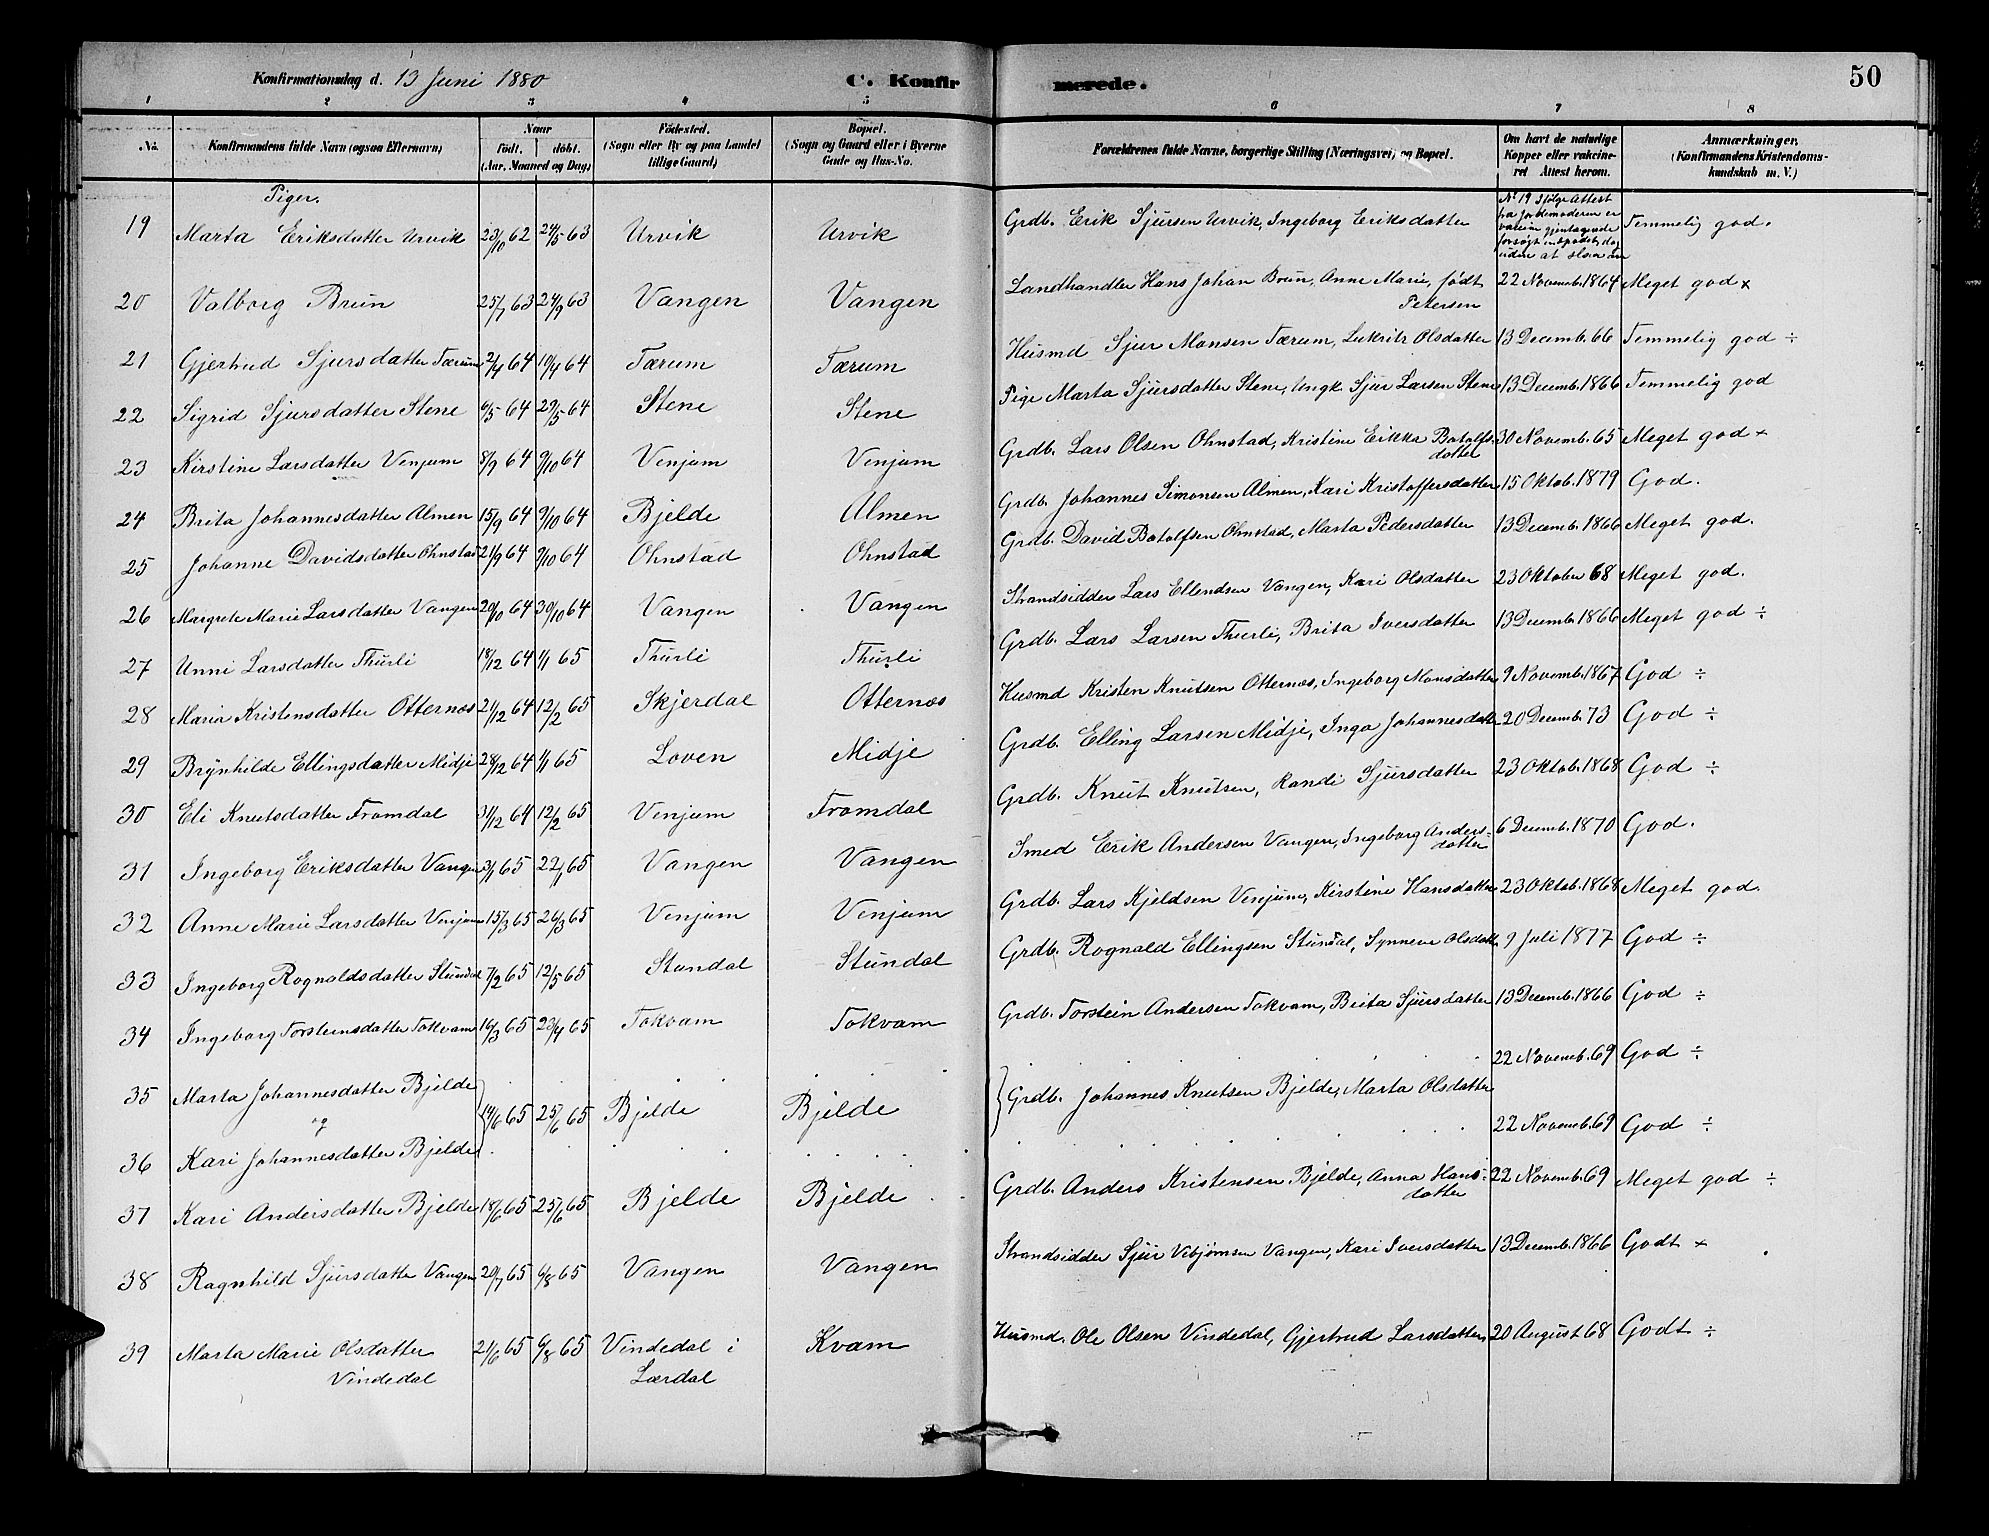 Konfirmationsdag d. 13 Juni 1880 C. Konfirmerede. 50
1 2 3 4 5 6 7 8
No. Konfirmandens fulde Navn (ogsaa Efternavn) Naar født. døbt. (Aar, Maaned og Dag) Fødested. (Sogn eller By og paa Landet tillige Gaard) Bopæl. (Sogn og Gaard eller i Byerne Gade og Hus-No. Forældrenes fulde Navne, borgerlige Stilling (Næringsvei) og Bopæl. Om havt de naturlige Kopper eller vakcineret Attest herom. Anmærkninger. (Konfirmandens Kristendomskundskab m. V.)
Piger.
19 Marta Eriksdatter Urvik 23/10 62 24/5 63 Urvik Urvik Grdb. Erik Sjursen Urvik, Ingeborg Eriksdatter No 19 ifølge Attest fra Jordemoderen er vaccine gjentagende forsøgt indpodet, dog uden at slaa an Temmelig god.
20 Valborg Brun 25/7 63 24/9 63 Vangen Vangen Landhandler Hans Johan Brun, Anne Marie, født Petersen 22 Novemb. 1864 Meget god ×
21 Gjertrud Sjursdatter Tærum 2/4 64 10/4 64 Tærum Tærum Husmd Sjur Monsen Tærum, Olsdatter 13 Decemb. 66 Temmelig god ÷
22 Sigrid Sjursdatter Stene 6/5 64 29/5 64 Stene Stene Pige Marta Sjursdatter Stene, Ungk. Sjur Larsen Stene 13 Decemb. 1866 Temmelig god
23 Kirstine Larsdatter Venjum 8/9 64 9/10 64 Venjum Venjum Grdb. Lars Olsen Ohnstad, Kristine Erikka Botolfsdatter 30 Novemb. 65 Meget god ×
24 Brita Johannesdatter Almen 15/9 64 9/10 64 Bjelde Almen Grdb. Johannes Simonsen Almen, Kari Kristoffersdatter 15 Oktob. 1879 God.
25 Johanne Davidsdatter Ohnstad 21/9 64 9/10 64 Ohnstad Ohnstad Grdb. David Botolfsen Ohnstad, Marta Pedersdatter 13 Decemb. 1866 Meget god.
26 Margrete Marie Larsdatter Vangen 20/10 64 30/10 64 Vangen Vangen Strandsidder Lars Ellendsen Vangen, Kari Olsdatter 23 Oktober 68 Meget god.
27 Unni Larsdatter Thurli 18/12 64 1/1 65 Thurli Thurli Grdb. Lars Larsen Thurli, Brita Iversdatter 13 Decemb. 1866 Meget god ÷
28 Maria Kristensdatter Otternæs 21/12 64 12/2 65 Skjerdal Otternæs Husmd Kristen Knutsen Otternæs, Ingeborg Monsdatter 9 Novemb. 1867 God ÷
29 Brynhilde Ellingsdatter Midje 28/12 64 1/1 65 Loven Midje Grdb. Elling Larsen Midje, Inga Johannesdatt 20 Decemb. 73 God ÷
30 Eli Knutsdatter Fromdal 31/12 64 12/2 65 Venjum Fromdal Grdb. Knut Knutsen, Randi Sjursdatter 23 Oktob. 1868 God ÷
31 Ingeborg Eriksdatter Vangen 3/1 65 22/1 65 Vangen Vangen Smed Erik Andersen Vangen, Ingeborg Andersdatter 6 Decemb. 1870 God.
32 Anne Marie Larsdatter Venjum 15/3 65 26/3 65 Venjum Venjum Grdb. Lars Kjeldsen Venjum, Kirstine Hansdatter 23 Oktob. 1868 Meget god.
33 Ingeborg Rognaldsdatter Stundal 7/2 65 12/5 65 Stundal Stundal Grdb. Rognald Ellingsen Stundal, Synneva Olsdatt 9 Juli 1877 God ÷
34 Ingeborg Torsteinsdatter Tokvam 16/3 65 23/4 65 Tokvam Tokvam Grdb. Torstein Andersen Tokvam, Brita Sjursdatter 13 Decemb. 1866 God ÷
35 Marta Johannesdatter Bjelde 22 Novemb. 69 God ÷
og 14/6 65 25/6 65 Bjelde Bjelde Grdb. Johannes Knutsen Bjelde, Marta Olsdatter
36 Kari Johannesdatter Bjelde 22 Novemb. 69 God ÷
37 Kari Andersdatter Bjelde 18/6 65 25/6 65 Bjelde Bjelde Grdb. Anders Kristensen Bjelde, Anna Hansdatter 22 Novemb. 69 Meget god ÷
38 Ragnhild Sjursdatter Vangen 20/7 65 6/8 65 Vangen Vangen Strandsidder Sjur Vebjørnsen Vangen, Kari Iversdatter 13 Decemb. 1866 Godt ×
39 Marta Marie Olsdatter 21/6 65 6/8 65 Vindedal i Kvam Husmd. Ole Olsen Vindedal, Gjertrud Larsdatter, 20 August 68 Godt ÷
Vindedal Lærdal